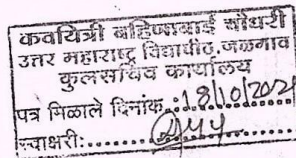 कवयित्री बहिणाबाई चौधरी
उत्तर महाराष्ट्र विद्यापीठ, जळगाव
कुलसचिव कार्यालय
पत्र मिळाले दिनांक.:18/10/202
स्वाक्षरी: